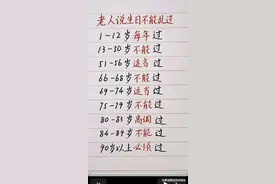 老人说生日不能乱过
1-12岁每年过
13-50岁不能过
51-56岁适当过
66-68岁不能过
69-74岁适当过
75-79岁不能过
80-83岁高调过
84-89岁不能过
90岁以上必须过